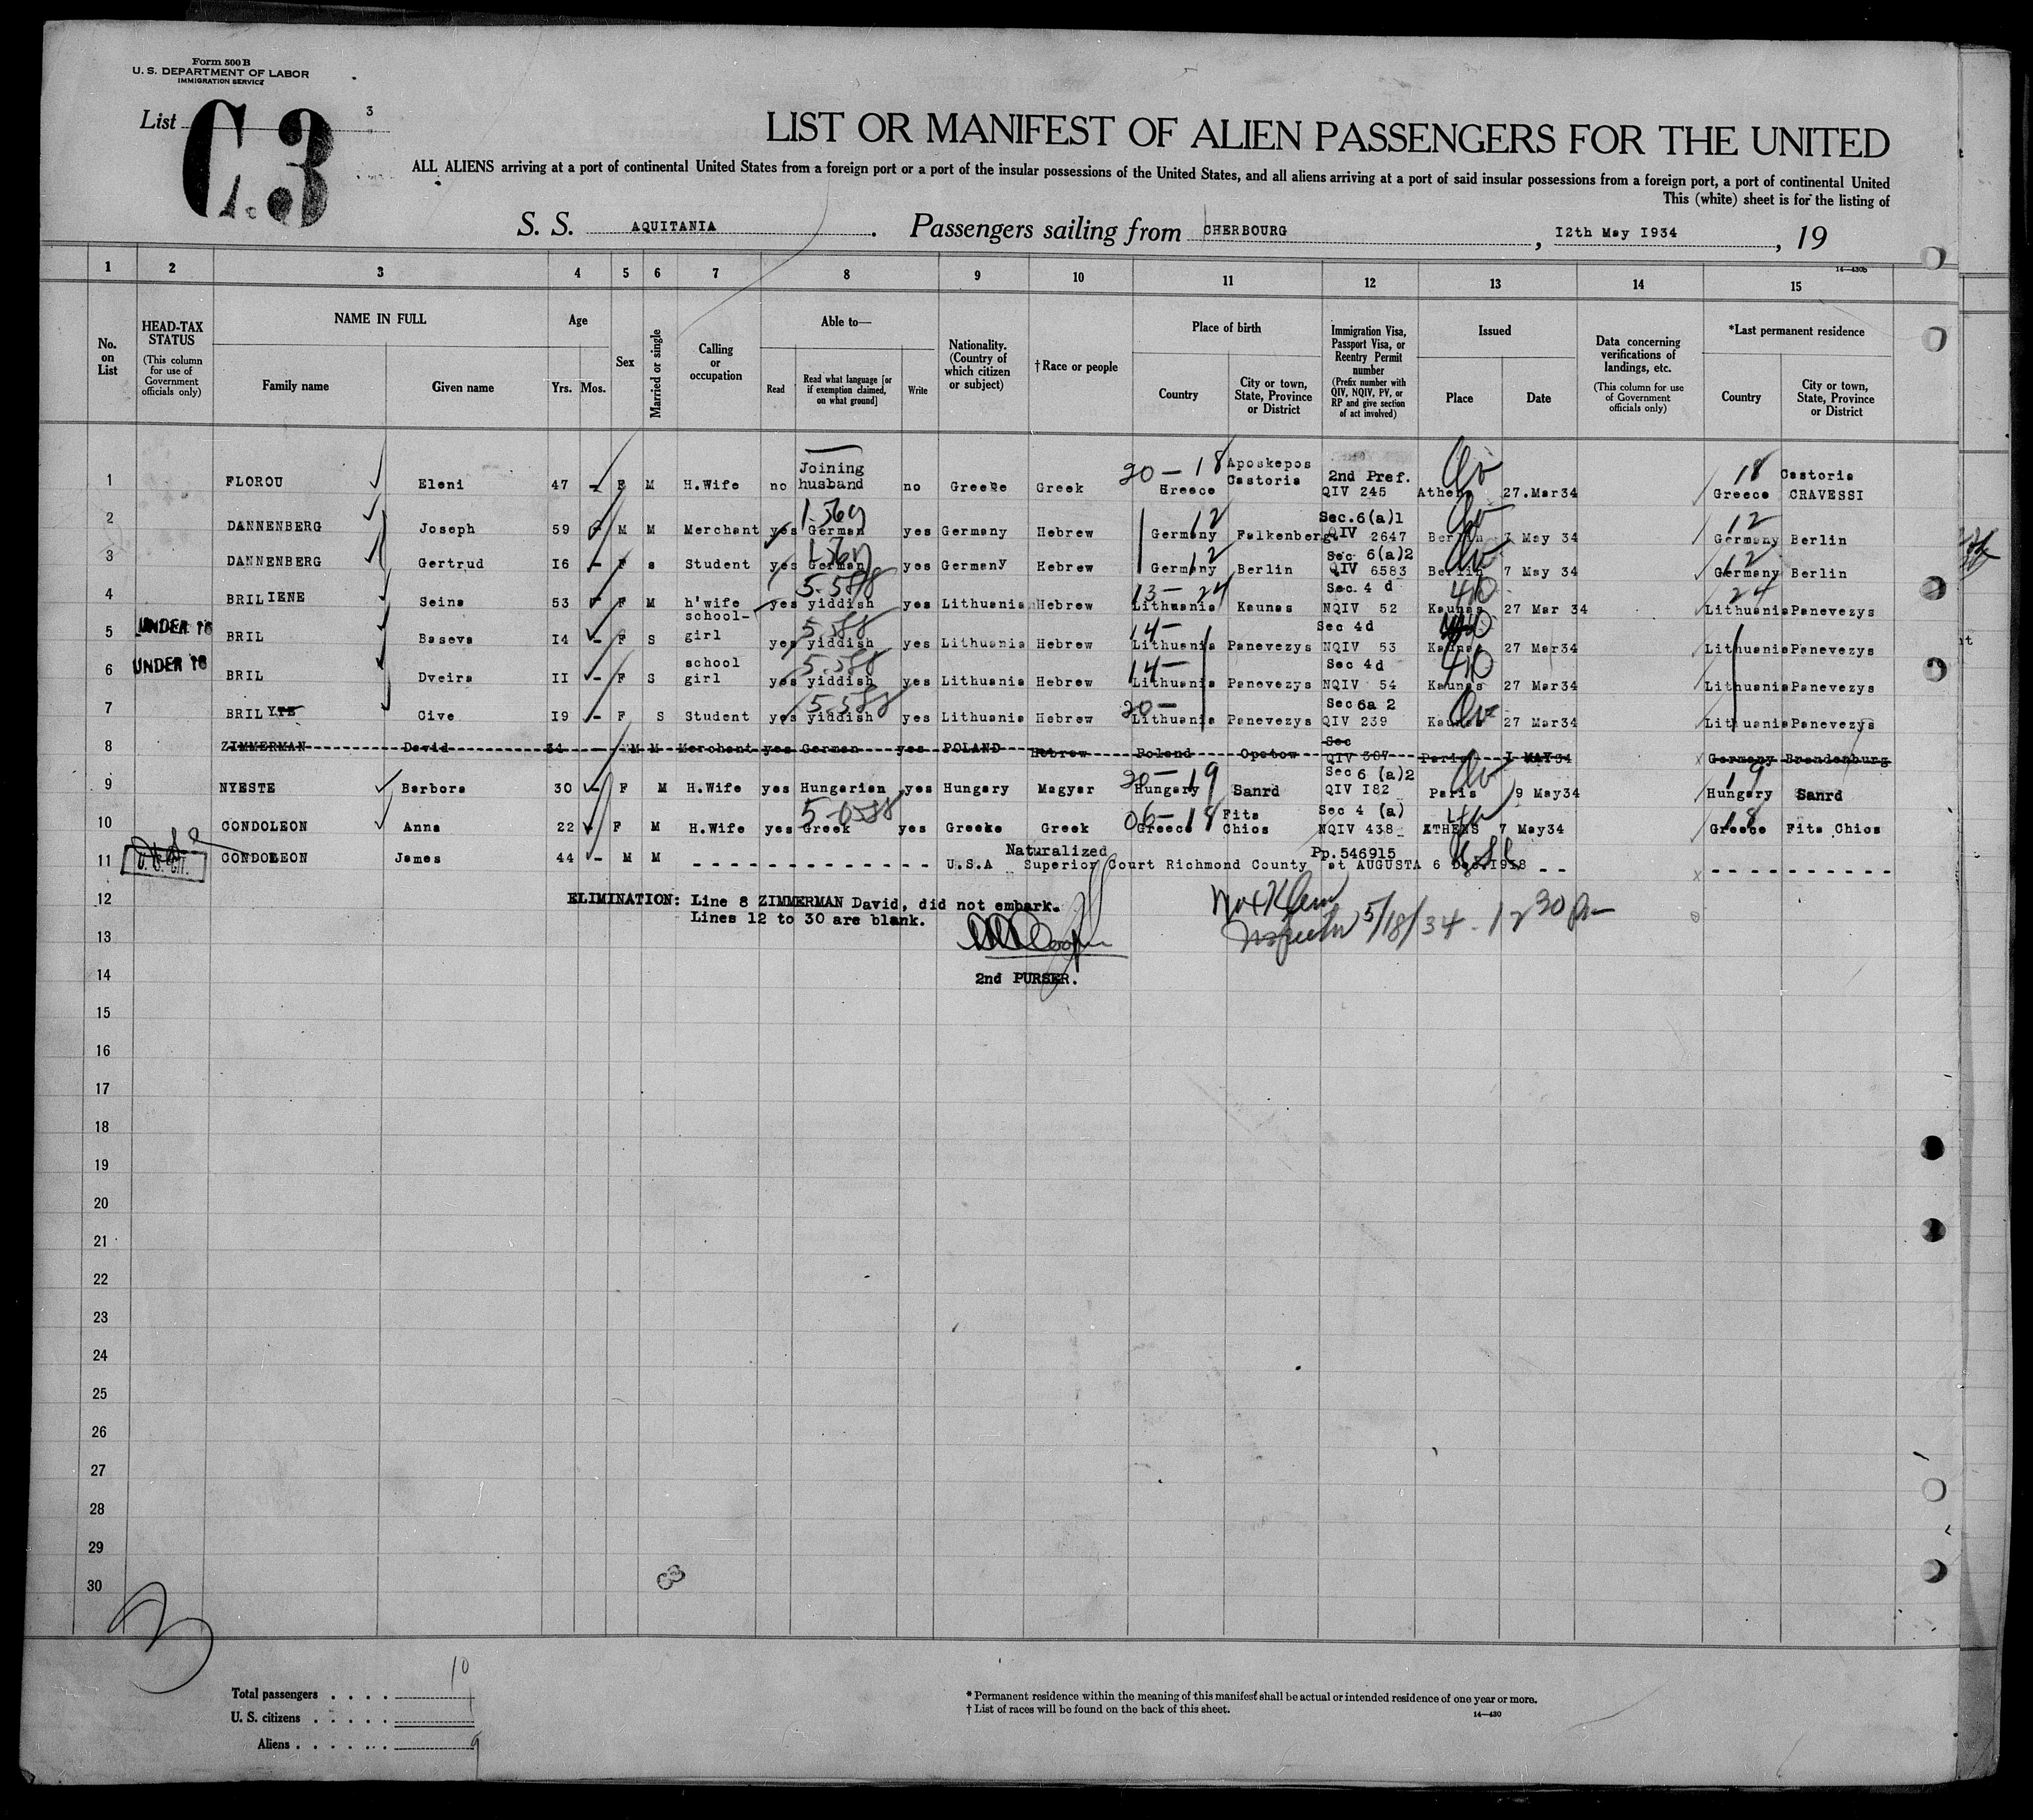 Form 500 B
U. S. DEPARTMENT OF LABOR
IMMIGRATION SERVICE
List 3
C. 3
LIST OR MANIFEST OF ALIEN PASSENGERS FOR THE UNITED
ALL ALIENS arriving at a port of continental United States from a foreign port or a port of the insular possessions of the United States, and all aliens arriving at a port of said insular possessions from a foreign port, a port of continental United
This (white) sheet is for the listing of
S. S. AQUITANIA. Passengers sailing from CHERBOURG, 12th May 1934, 19
14—430b
1 2 3 4 5 6 7 8 9 10 11 12 13 14 15
No. on List
HEAD-TAX STATUS (This column for use of Government officials only)
NAME IN FULL
Family name Given name
Age
Yrs. Mos.
Sex
Married or single
Calling or occupation
Able to—
Read Read what language [or if exemption claimed, on what ground] Write
Nationality. (Country of which citizen or subject)
† Race or people
Place of birth
Country City or town, State, Province or District
Immigration Visa, Passport Visa, or Reentry Permit number (Prefix number with QIV, NQIV, PV, or RP and give section of act involved)
Issued
Place Date
Data concerning verifications of landings, etc. (This column for use of Government officials only)
*Last permanent residence
Country City or town, State, Province or District
1 FLOROU Eleni 47 - F M H.Wife no Joining husband no Greece Greek 20-18 Greece Aposkepos Castoria 2nd Pref. QIV 245 Athens 27.Mar34 18 Greece Castoria CRAVESSI
2 DANNENBERG Joseph 59 - M M Merchant yes German yes Germany Hebrew 12 Germany Falkenberg Sec.6(a)1 QIV 2647 Berlin 7 May 34 12 Germany Berlin
3 DANNENBERG Gertrud I6 - F s Student yes German yes Germany Hebrew 12 Germany Berlin Sec 6(a)2 QIV 6583 Berlin 7 May 34 12 Germany Berlin
4 BRILIENE Seina 53 - F M h'wife yes 5-588 yiddish yes Lithuania Hebrew 13-24 Lithuania Kaunas Sec. 4 d NQIV 52 Kaunas 27 Mar 34 24 Lithuania Panevezys
5 UNDER 16 BRIL Baseva I4 - F S school-girl yes 5.588 yiddish yes Lithuania Hebrew 14- Lithuania Panevezys Sec 4d NQIV 53 Kaunas 27 Mar34 Lithuania Panevezys
6 UNDER 16 BRIL Dveira II - F S school girl yes 5.588 yiddish yes Lithuania Hebrew 14- Lithuania Panevezys Sec 4d NQIV 54 Kaunas 27 Mar34 Lithuania Panevezys
7 BRILYTE Cive I9 - F S Student yes 5.588 yiddish yes Lithuania Hebrew 20- Lithuania Panevezys Sec 6a 2 QIV 239 Kaunas 27 Mar34 Lithuania Panevezys
8 ZIMMERMAN David 34 - M M Merchant yes German yes POLAND Hebrew Poland Opatow Sec QIV 307 Paris MAY34 Germany Brandenburg
9 NYESTE Barbora 30 - F M H.Wife yes Hungarian yes Hungary Magyar 20-19 Hungary Sanrd Sec 6 (a)2 QIV I82 Paris 9 May34 19 Hungary Sanrd
10 CONDOLEON Anna 22 F M H.Wife yes Greek yes Greeke Greek 06-18 Greece Fita Chios Sec 4 (a) NQIV 438 ATHENS 7 May34 18 Greece Fita Chios
11 CONDOLEON James 44 - M M U.S.A Naturalized Superior Court Richmond County at AUGUSTA 6 Dec.1918 Pp.546915
12 ELIMINATION: Line 8 ZIMMERMAN David, did not embark.
Lines 12 to 30 are blank.
Inspector 5/18/34 - 12 30 pm
13
2nd PURSER.
14
15
16
17
18
19
20
21
22
23
24
25
26
27
28
29
30
Total passengers . . . . 10
U. S. citizens . . . . . 1
Aliens . . . . . . . 9
* Permanent residence within the meaning of this manifest shall be actual or intended residence of one year or more.
† List of races will be found on the back of this sheet.
14—430